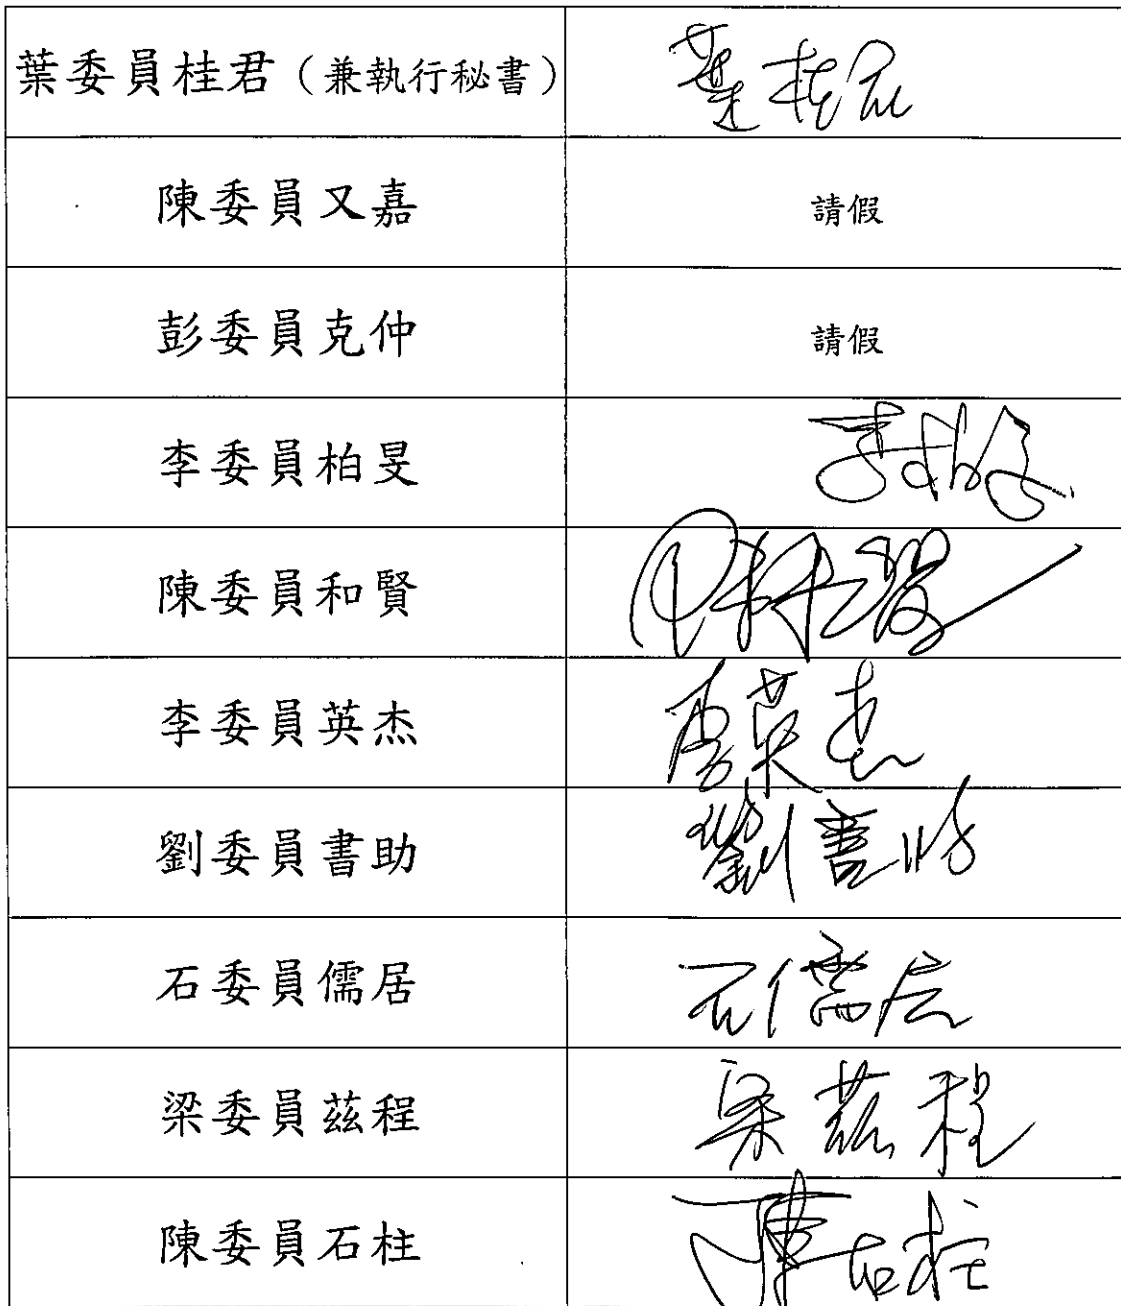 葉委員桂君（兼執行秘書） 葉桂君
陳委員又嘉 請假
彭委員克仲 請假
李委員柏旻
陳委員和賢
李委員英杰 李英杰
劉委員書助 劉書助
石委員儒居 石儒居
梁委員茲程 梁茲程
陳委員石柱 陳石柱